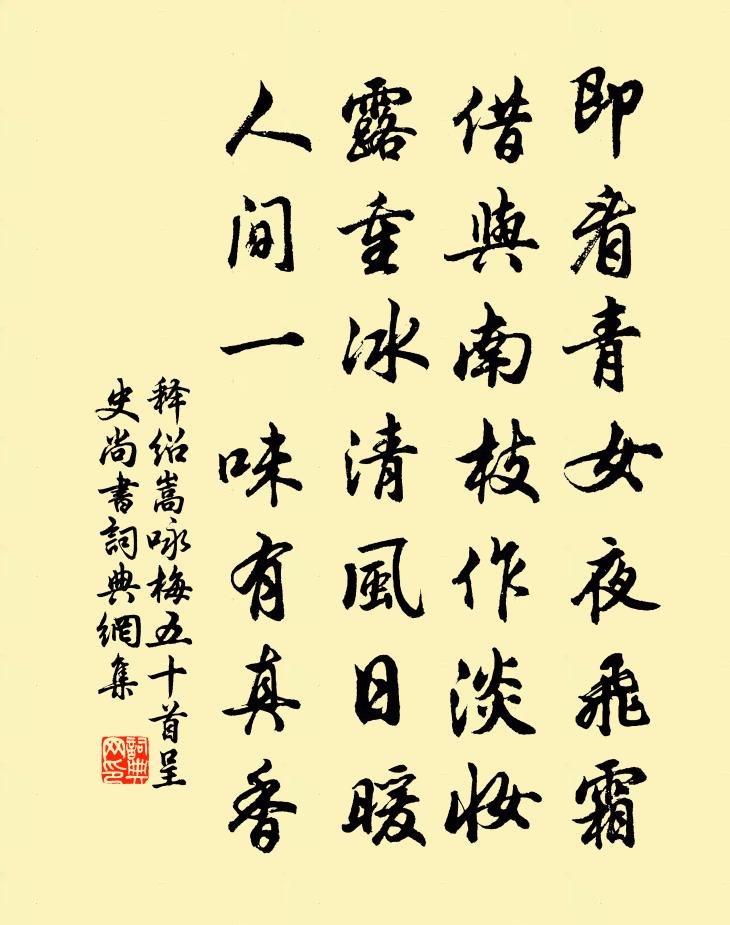 即看青女夜飛霜
借與南枝作淡妝
露重冰清風日暖
人间一味有真香
释绍嵩咏梅五十首呈
史尚書詞典網集
詞典
网印